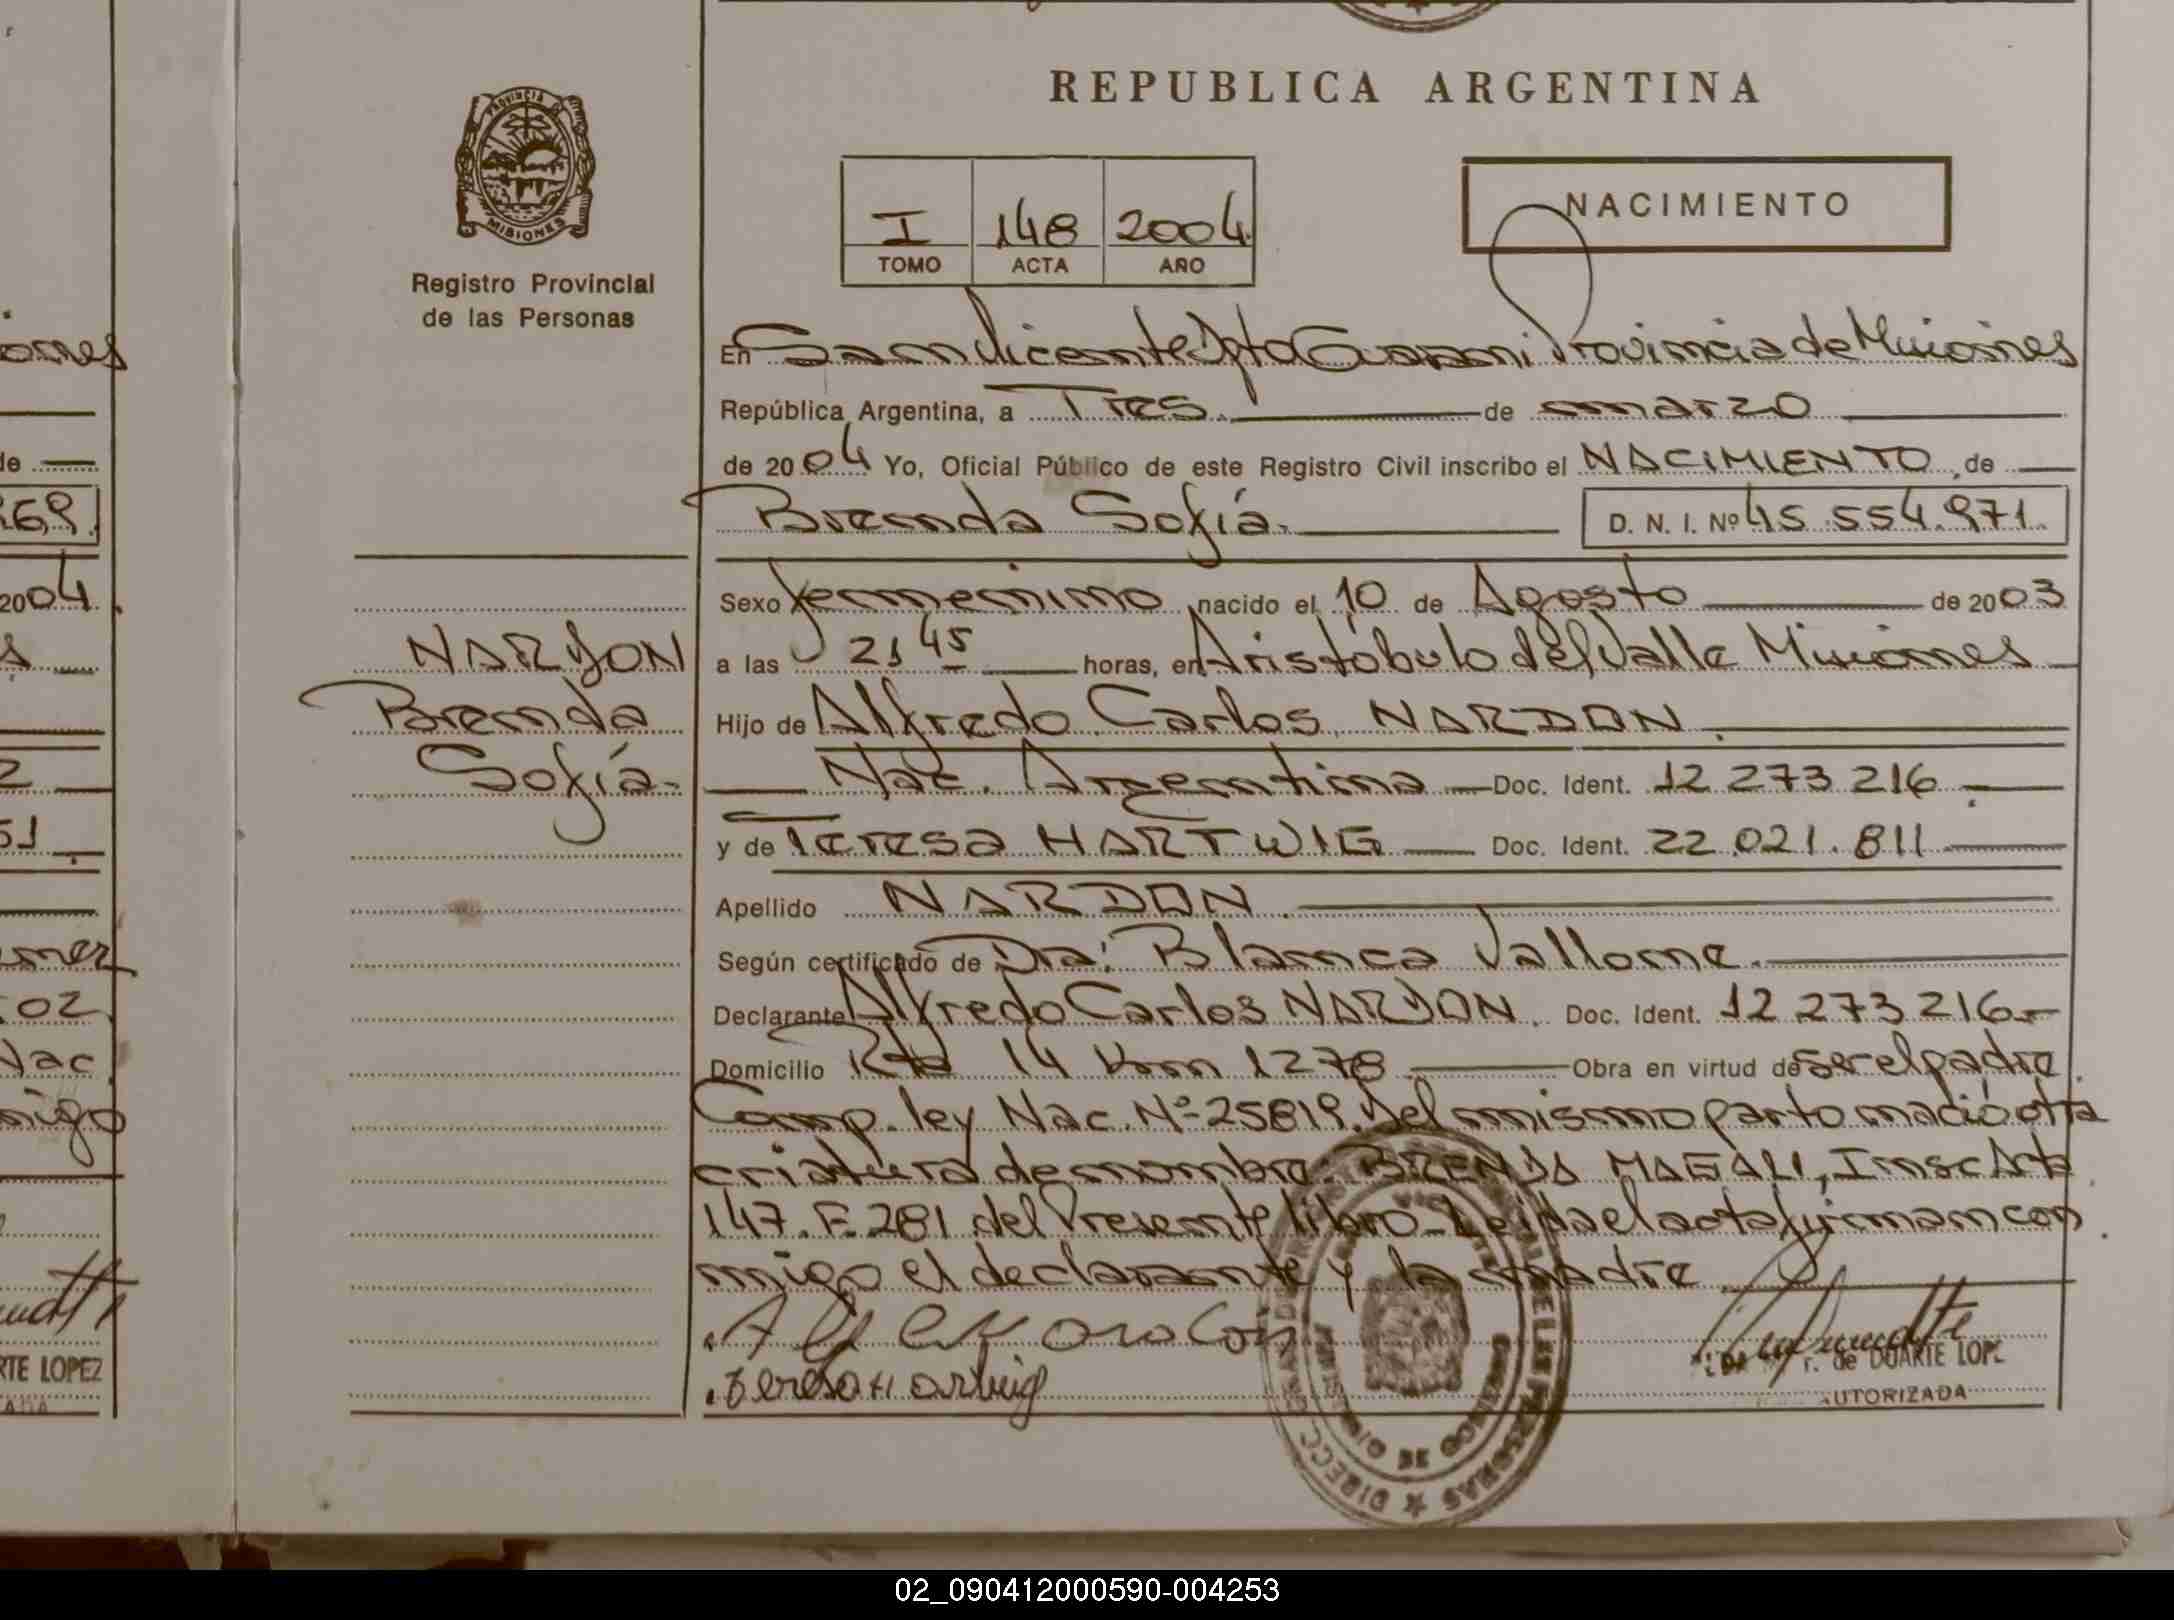 REPUBLICA ARGENTINA
PROVINCIA DE
MISIONES
Registro Provincial
de las Personas
I 148 2004
TOMO ACTA AÑO
NACIMIENTO
En San Vicente Dpto Guaraní Provincia de Misiones
República Argentina, a Tres de marzo
de 2004 Yo, Oficial Público de este Registro Civil inscribo el NACIMIENTO de
Brenda Sofía. D. N. I. Nº 45.554.971.
Sexo femenino nacido el 10 de Agosto de 2003
a las 21 45 horas, en Aristóbulo del Valle Misiones
Hijo de Alfredo Carlos NARDON
Nac. Argentina Doc. Ident. 12.273.216
y de Teresa HARTWIG Doc. Ident. 22.021.811
Apellido NARDON
Según certificado de Dra: Blanca Vallone.
Declarante Alfredo Carlos NARDON. Doc. Ident. 12.273.216
Domicilio Rta 14 Km 1278 Obra en virtud de ser el padre
Comp. ley Nac. Nº 25819. Del mismo parto nació otra
criatura de nombre: BRENDA MAGALI, Insc Acta
147. F. 281 del Presente libro - Leída el acta firman con
migo el declarante y la madre
Teresa Hartwig
r. de DUARTE LOP
AUTORIZADA
NARDON
Brenda
Sofía.
ones
de
269.
2004.
51
02
Nac
migo
RTE LOPEZ
02_090412000590-004253